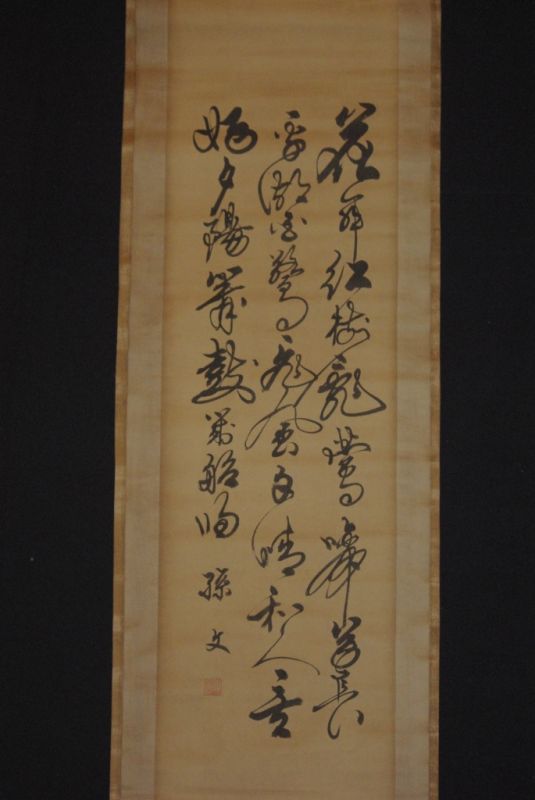 花開紅樹亂鶯啼草長
平湖白鷺飛風日晴和人意
好夕陽簫鼓幾船歸
孫文